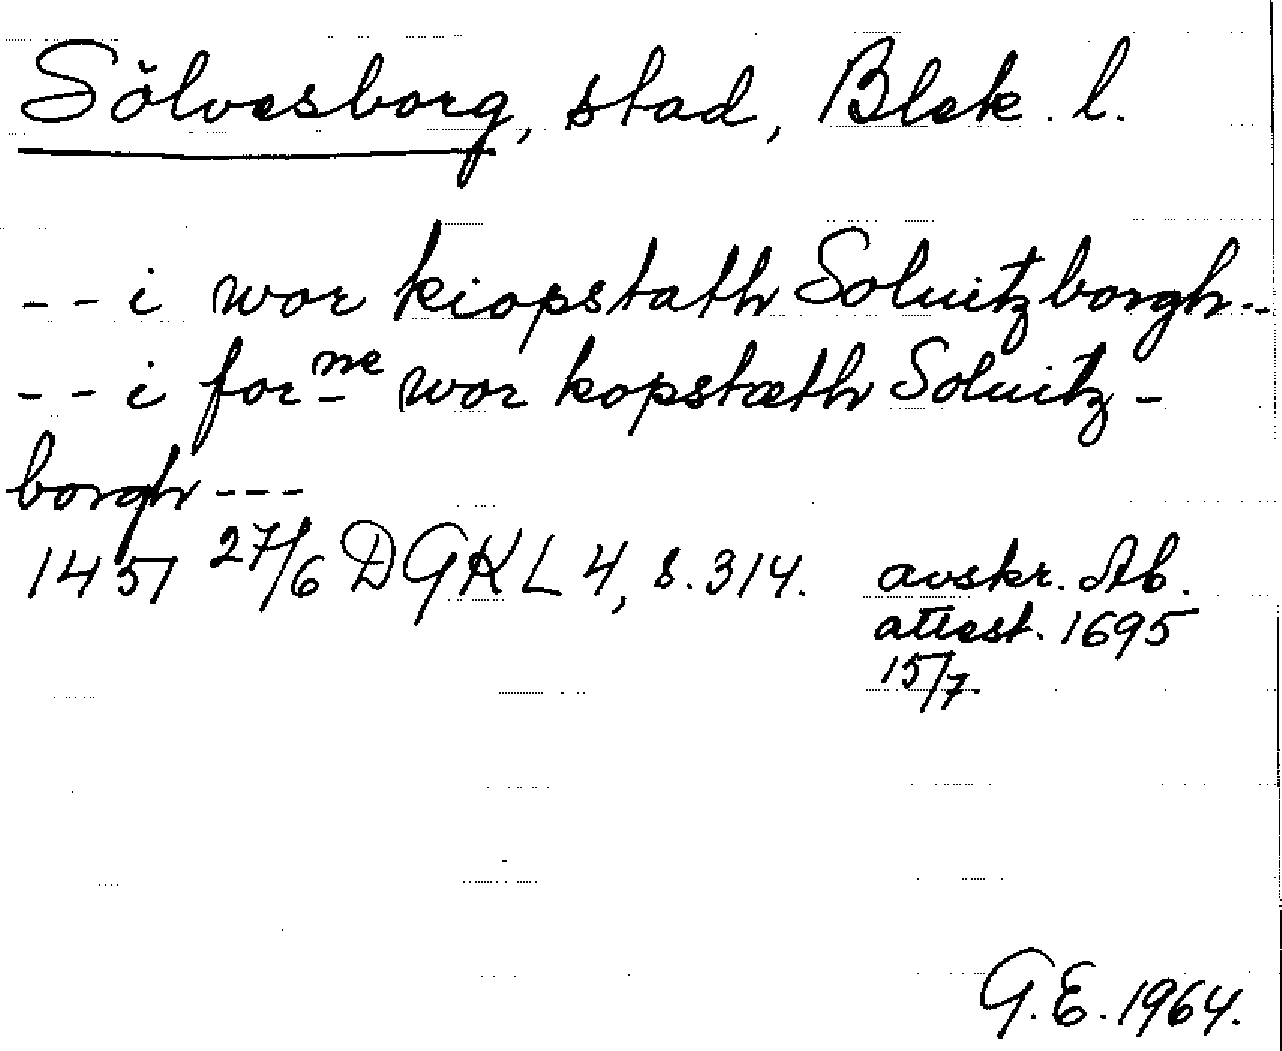 Sölvesborg, stad, Blek. l.
-- i wor kiopstath Soluitzborgh--
-- i forne wor kopstæth Soluitz-
borgh---
1451 27/6 DGKL 4, s. 314. avskr. Ab.
attest. 1695
15/7.
G.E. 1964.